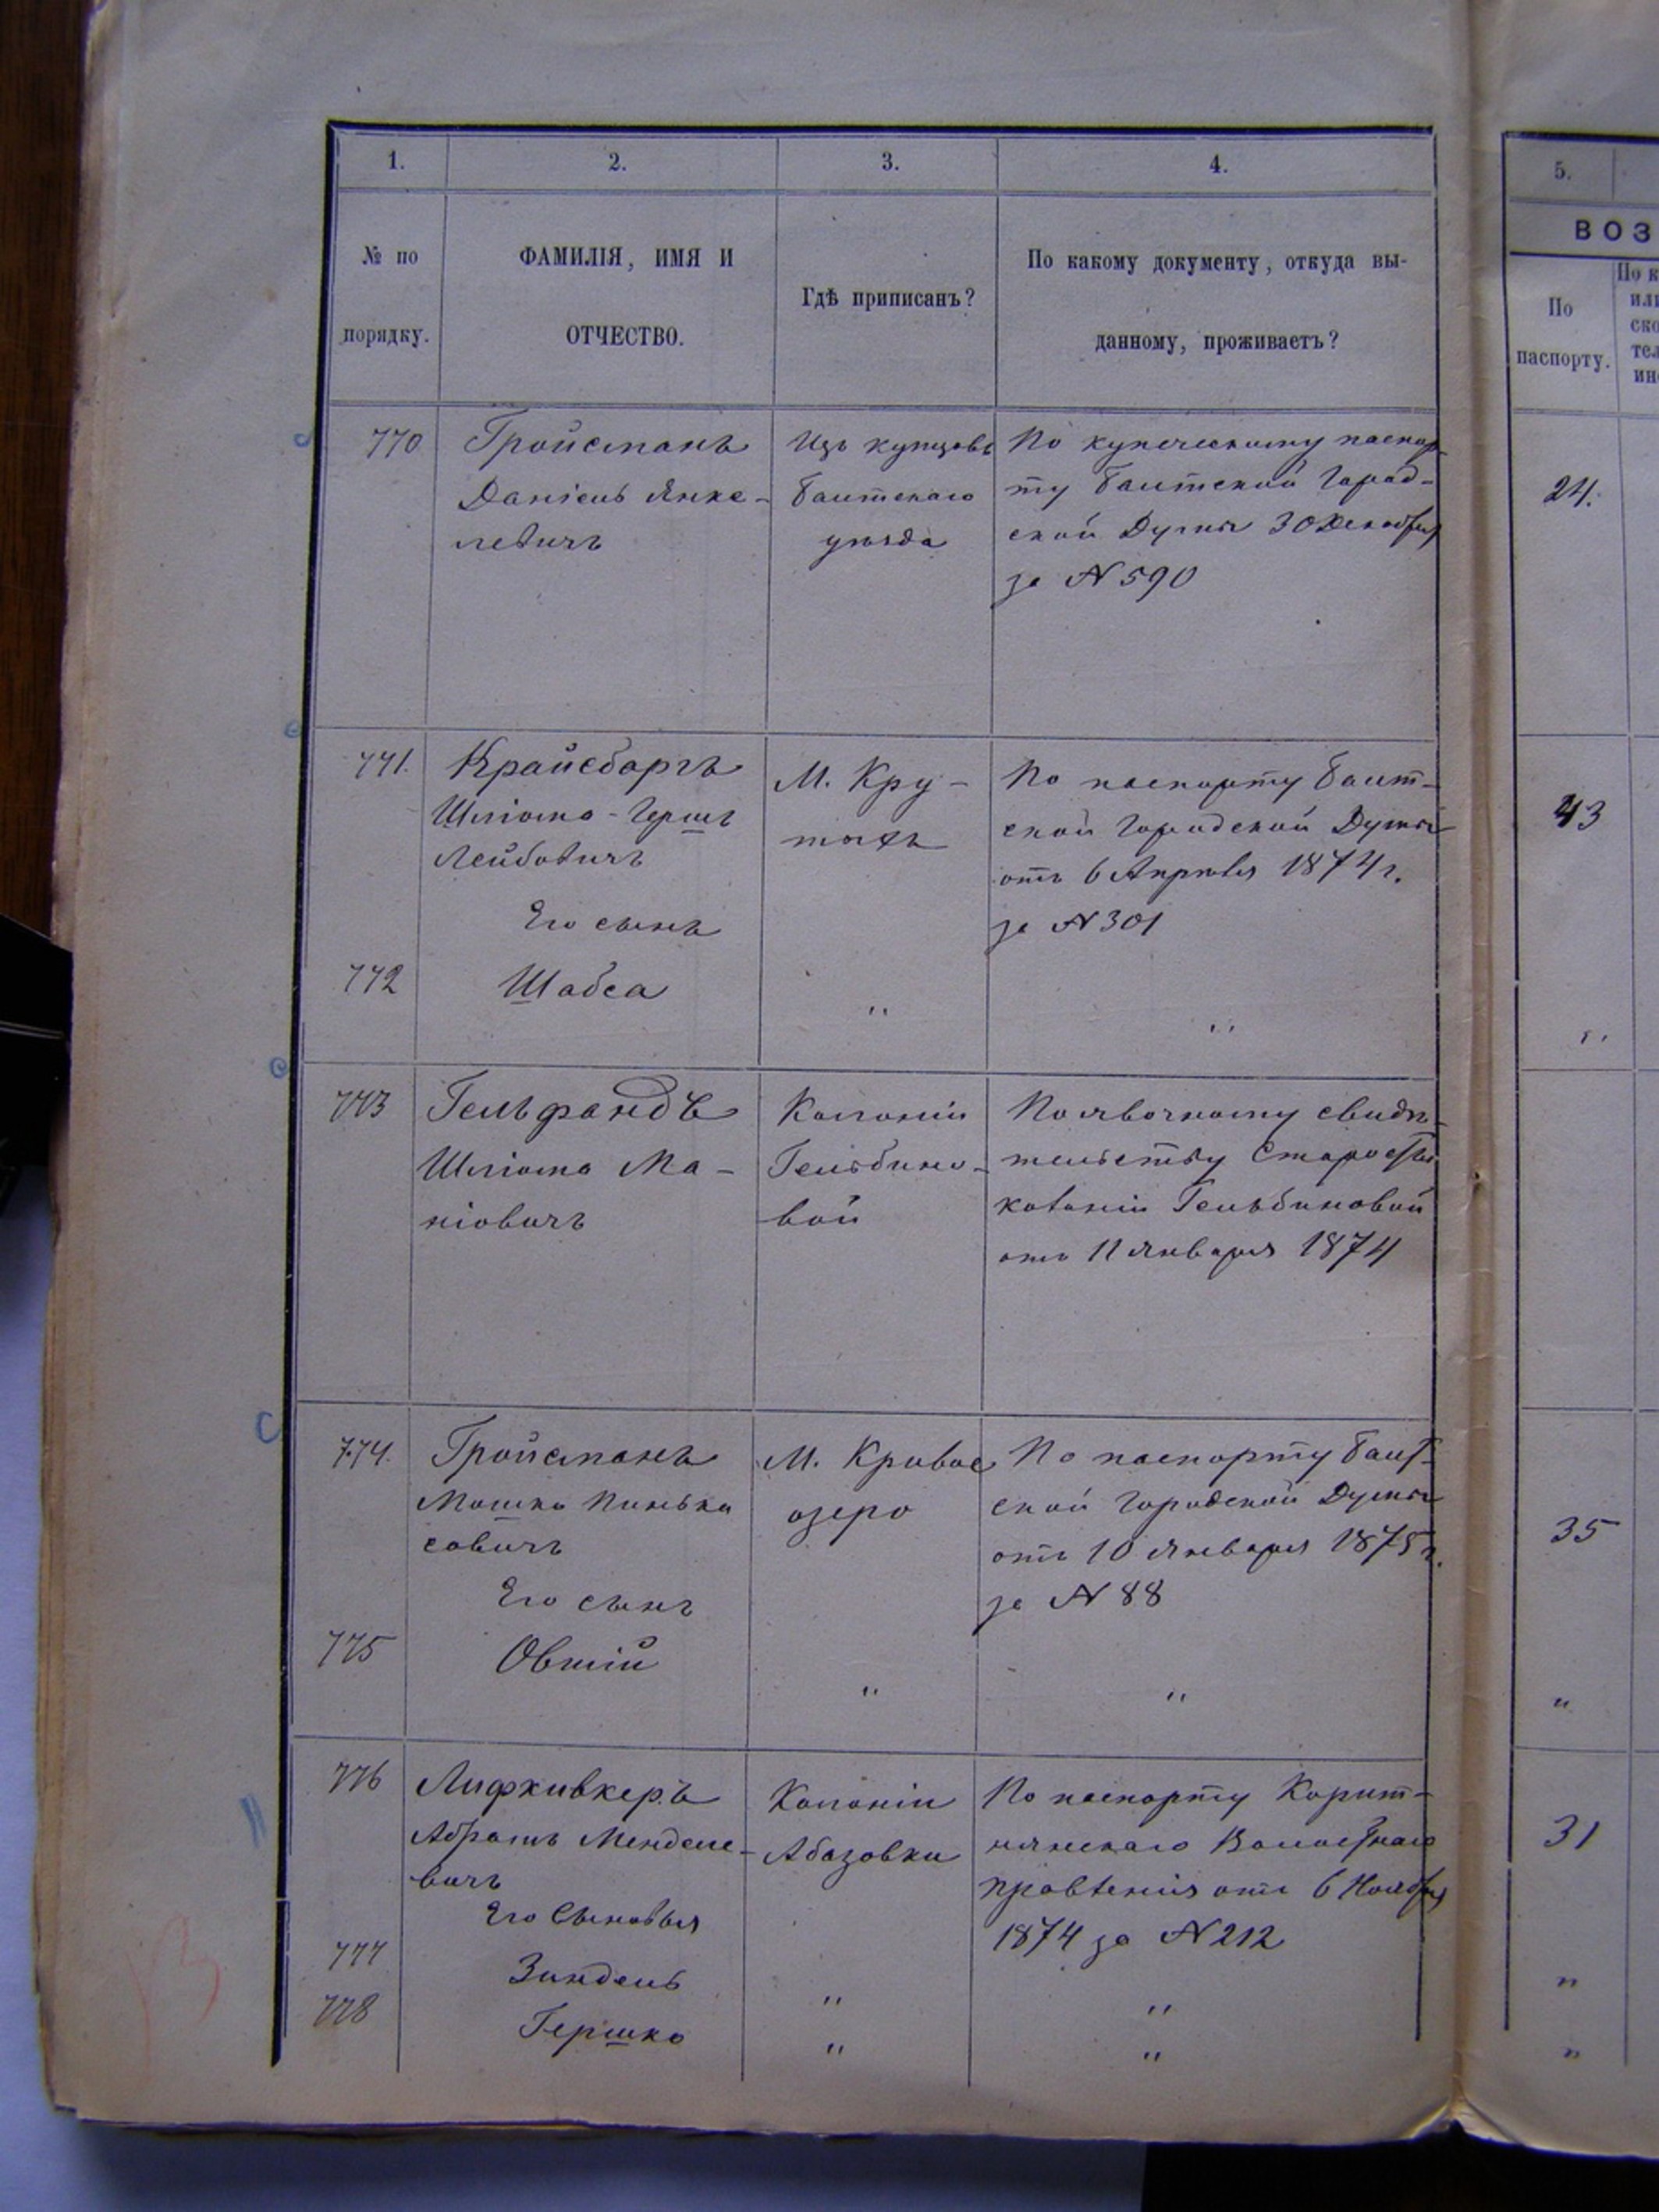 1. 2. 3. 4.
№ по порядку.
ФАМИЛІЯ, ИМЯ И
ОТЧЕСТВО.
Гдѣ приписанъ?
По какому документу, откуда вы-
данному, проживаетъ?
770
Гройсманъ
Даніель Янке-
левичъ
Изъ купцовъ
Балтскаго
уѣзда
По купеческому паспор-
ту Балтской Город-
ской Думы 30 Декабря
за № 590
771.
Крайсбаргъ
Шліома-Гершъ
Лейбовичъ
Его сынъ
М. Кру-
тыхъ
По паспорту Балт-
ской Городской Думы
отъ 6 Апрѣля 1874 г.
за № 301
772
Шабса
"
"
773
Гельфандъ
Шліома Ма-
ніовичъ
Колоніи
Гельбино-
вой
По явочному свидѣ-
тельству Старосты
колоніи Гельбиновой
отъ 11 Января 1874
774.
Гройсманъ
Мошко Пинька
совичъ
Его сынъ
М. Кривое
озеро
По паспорту Балт-
ской Городской Думы
отъ 10 Января 1875 г.
за № 88
775
Овшій
"
"
776
Лифкивкеръ
Абрамъ Менделе-
вичъ
Его Сыновья
Колоніи
Абазовки
По паспорту Корит-
нянскаго Волостнаго
правленія отъ 6 Ноября
1874 за № 212
777
Зиндель
"
"
778
Гершко
"
"
5.
ВОЗ
По
паспорту.
По к
или
ско
тел
ин
24.
43
"
35
"
31
"
"